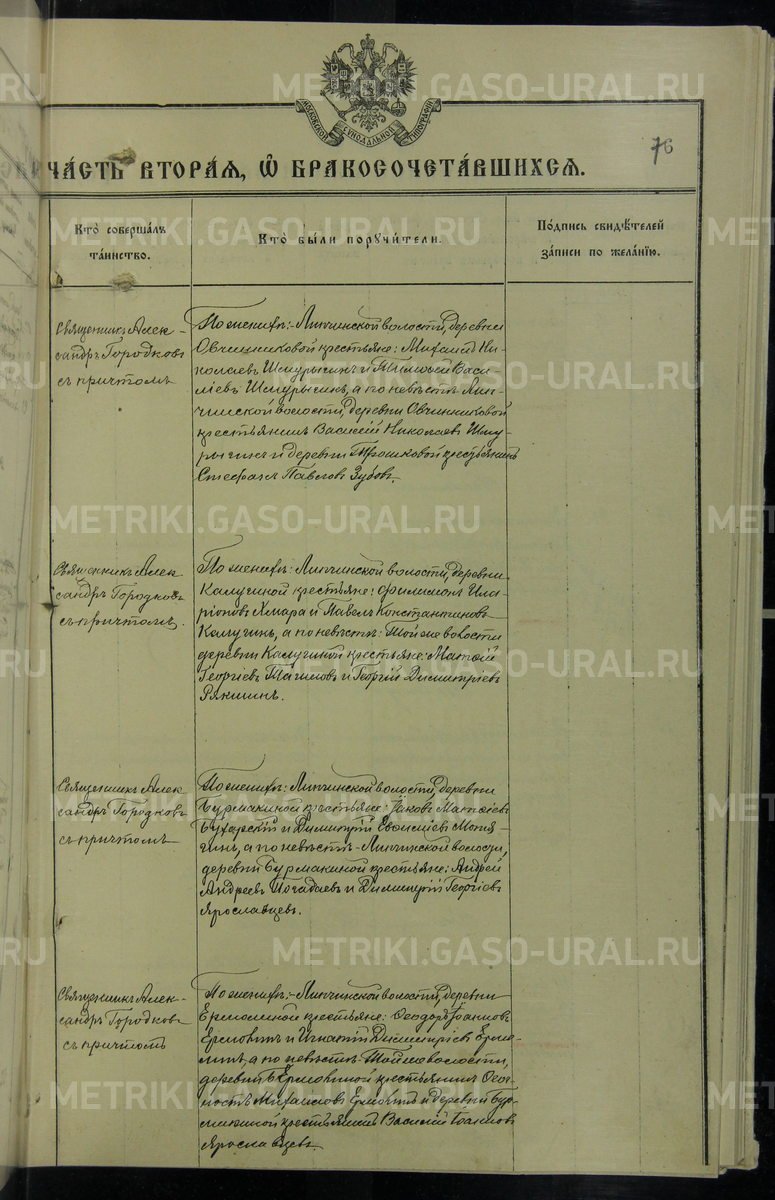 МОСКОВСКОЙ СѴНОДАЛЬНОЙ ТИПОГРАФІИ
76
ЧА́СТЬ ВТОРА́Я, Ѡ҆ БРАКОСОЧЕТА́ВШИХСЯ.
Кто̀ соверша́лъ
та́инство.
Кто̀ бы́ли порꙋчи́тели.
По́дпись свидѣ́телей
за́писи по жела́нїю.
Священникъ Алек-
сандръ Городковъ
съ причтомъ
По женихѣ: Липчинской волости, деревни
Овчинниковой крестьяне: Михаилъ Ни-
колаевъ Шмурыгинъ и Тимоѳей Васи-
ліевъ Шмурыгинъ, а по невѣстѣ Лип-
чинской волости, деревни Овчинниковой
крестьянинъ Василій Николаевъ Шму-
рыгинъ и деревни Трошковой крестьянинъ
Стефанъ Павловъ Зубовъ.
Священникъ Алек
сандръ Городковъ
съ причтомъ.
По женихѣ: Липчинской волости, деревни
Калугиной крестьяне: Филимонъ Ила-
ріоновъ и Павелъ Константиновъ
Калугинъ, а по невѣстѣ: Той же волости
деревни Калугиной крестьяне: Матѳей
Георгіевъ и Георгій Димитріевъ
Рякишинъ.
Священникъ Алек
сандръ Городковъ
съ причтомъ
По женихѣ: Липчинской волости, деревни
Бурмакиной крестьяне: Іаковъ Матѳіевъ
Бухарскій и Димитрій Евѳиміевъ
а по невѣстѣ Липчинской волости,
деревни Бурмакиной крестьяне: Андрей
Андреевъ и Димитрій Георгіевъ
Ярославцевъ.
Священникъ Алек-
сандръ Городковъ
съ причтомъ
По женихѣ: Липчинской волости, деревни
крестьяне: Ѳеодоръ Іоанновъ
и Игнатій Димитріевъ
а по невѣстѣ Той же волости,
деревни крестьянинъ
Михаиловъ и деревни Бур-
макиной крестьянинъ Василій Іоанновъ
Ярославцевъ.
METRIKI.GASO-URAL.RU